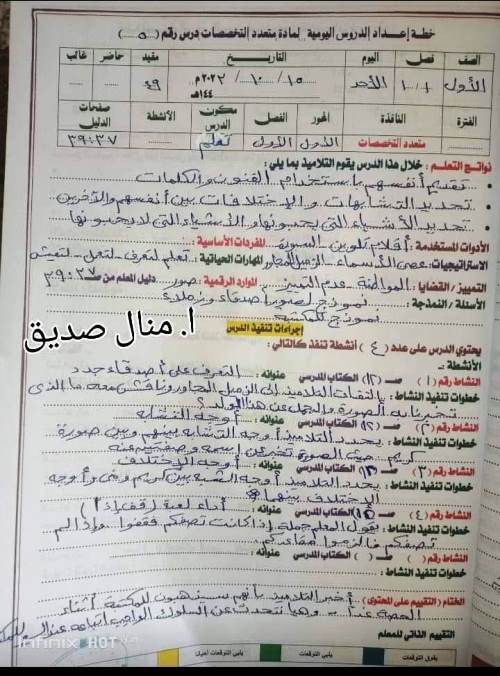 خطة إعداد الدروس اليومية لمادة متعدد التخصصات درس رقم ( ٥ )
الصف فصل اليوم التاريخ مقيد حاضر غائب
الأول ١/١ الأحد ١٥ / ١٠ / ٢٠٢٢م ٤٩
١٤٤هـ
الفترة النافذة المحور الفصل مكون الدرس الأنشطة صفحات الدليل
متعدد التخصصات الأول الأول تعلم ٣٩:٣٧
نواتج التعلم : خلال هذا الدرس يقوم التلاميذ بما يلي :
• تقديم أنفسهم باستخدام الفنون والكلمات
• تحديد التشابهات والاختلافات بين أنفسهم والآخرين
• تحديد الأشياء التي يحبونها والأشياء التي لا يحبونها
الأدوات المستخدمة : أقلام تلوين - السبورة المفردات الأساسية :
الاستراتيجيات : عصى الأسماء - الزميل المجاور المهارات الحياتية : تعلم لتعرف - لتعمل - لتعيش
التمييز / القضايا : المواطنة عدم التمييز الموارد الرقمية : صور دليل المعلم من صـ ٣٧:٣٩
الأسئلة / النمذجة : نموذج لصور أصدقاء وزملاء
نموذج للمكتبة
أ. منال صديق
إجراءات تنفيذ الدرس
يحتوي الدرس على عدد ( ٤ ) أنشطة تنفذ كالتالي :
الأنشطة :-
النشاط رقم ( ١ ) صـ ( ١٢ ) الكتاب المدرسي عنوانه : التعرف على أصدقاء جدد
خطوات تنفيذ النشاط : التفات التلاميذ إلى الزميل المجاور وناقش معه ما الذي
تخبرنا به الصورة والجمل عن هذا الولد ؟
النشاط رقم ( ٢ ) صـ ( ١٢ ) الكتاب المدرسي عنوانه : أوجه التشابه
خطوات تنفيذ النشاط : يحدد التلاميذ أوجه التشابه بينهم وبين صورة
كريم
النشاط رقم ( ٣ ) صـ ( ١٣ ) الكتاب المدرسي عنوانه : أوجه الاختلاف
خطوات تنفيذ النشاط : يحدد التلاميذ أوجه الشبه بين كريم ومنى وأوجه
الاختلاف بينهما
النشاط رقم ( ٤ ) صـ ( ١٥ ) الكتاب المدرسي عنوانه : أداء لعبة ( قف إذا )
خطوات تنفيذ النشاط : يقول المعلم جملة إذا كانت تصفكم فقفوا وإذا لم
تصفكم فالزموا مقاعدكم
النشاط رقم ( ) صـ ( ) الكتاب المدرسي عنوانه :
خطوات تنفيذ النشاط :
الختام ( التقييم على المحتوى ) : أخبر التلاميذ بأنهم سيذهبون للمكتبة أثناء
الحصة غدا وهيا نتحدث عن السلوك الواجب اتباعه عند
التقييم الذاتي للمعلم
يفوق التوقعات يلبي التوقعات يلبي التوقعات أحيانا
Infinix HOT